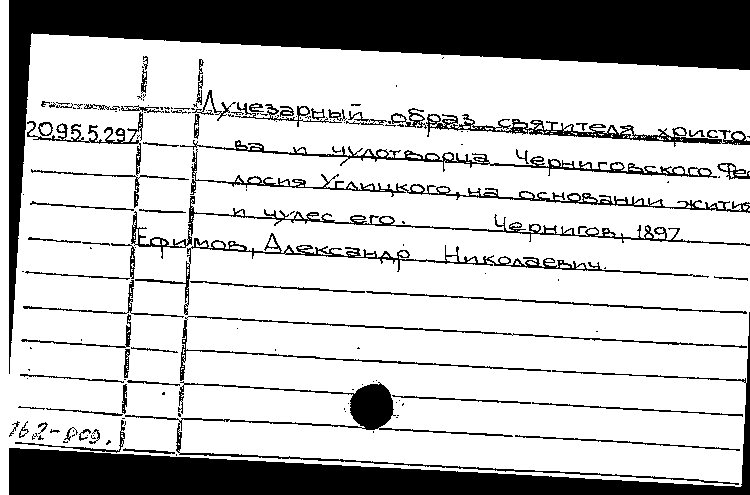 Лучезарный образ святителя христо
20.95.5.297
ва и чудотворца Черниговского Фео
досия Углицкого, на основании жития
и чудес его. Чернигов, 1897
Ефимов, Александр Николаевич.
162-809.